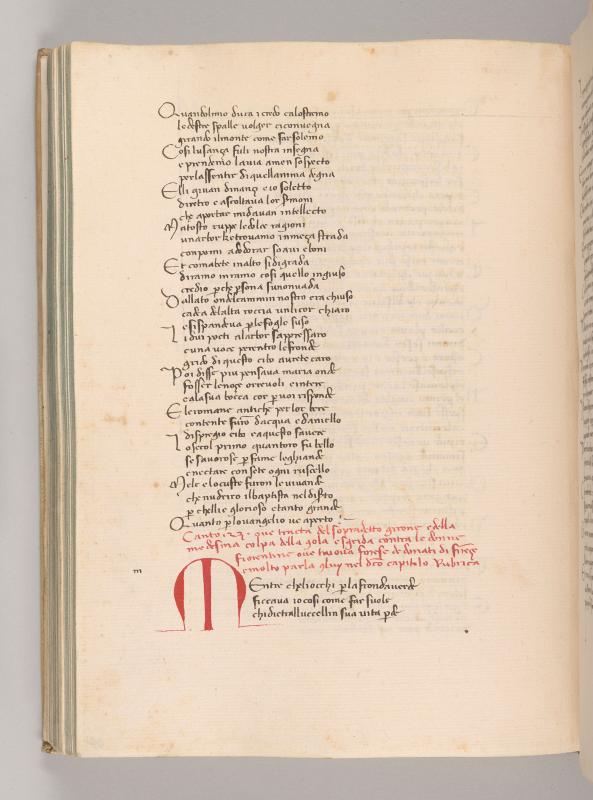 Quandolimo dura i credo calostremo
ledestre spalle volger ci convegna
girando ilmonte come far solemo
Cosi lusança fuli nostra insegna
e prendemo lavia amen sospecto
per lassentir di quellanima degna
Elli givan dinançi e io soletto
diretro e ascoltava lor sermoni
che aportar midavan intellecto
Ma tosto ruppe le dolce ragioni
un arbor ke trovamo inmeça strada
con pomi adodorar soavi eboni
Et comabete inalto sidigrada
diramo inramo cosi quello in giuso
credio per che persona su non vada
Dallato ondelcammin nostro era chiuso
cadea delalta roccia un licor chiaro
e si spandeva per le fogle suso
Li dui poeti alarbor sappressaro
e una voce per entro le fronde
grido di questo cibo avrete caro
Poi disse piu pensava maria onde
fosser le noçe orrevoli e intere
ca la sua bocca cor per voi risponde
E le romane antiche per lor bere
contente furon dacqua e daniello
dispregio cibo e aquisto savere
Lo secol primo quantoro fu bello
se savorose per fame leghiande
e nectare con sete ogni ruscello
Mele e locuste furon le vivande
che nudriro il baptista nel disito
per chelli e glorioso e tanto grande
Quanto per lo vangelio ve aperto
Canto .23. que tracta del sopradetto girone e della
medesma colpa della gola e sgrida contra le donne
fiorentine ove truova forese de donati di firençe
e molto parla
nel dicto capitolo Rubrica
m
MEntre che li occhi per la fronda verde
ficcava io cosi come far suole
chi dietra lluccellin sua vita perde